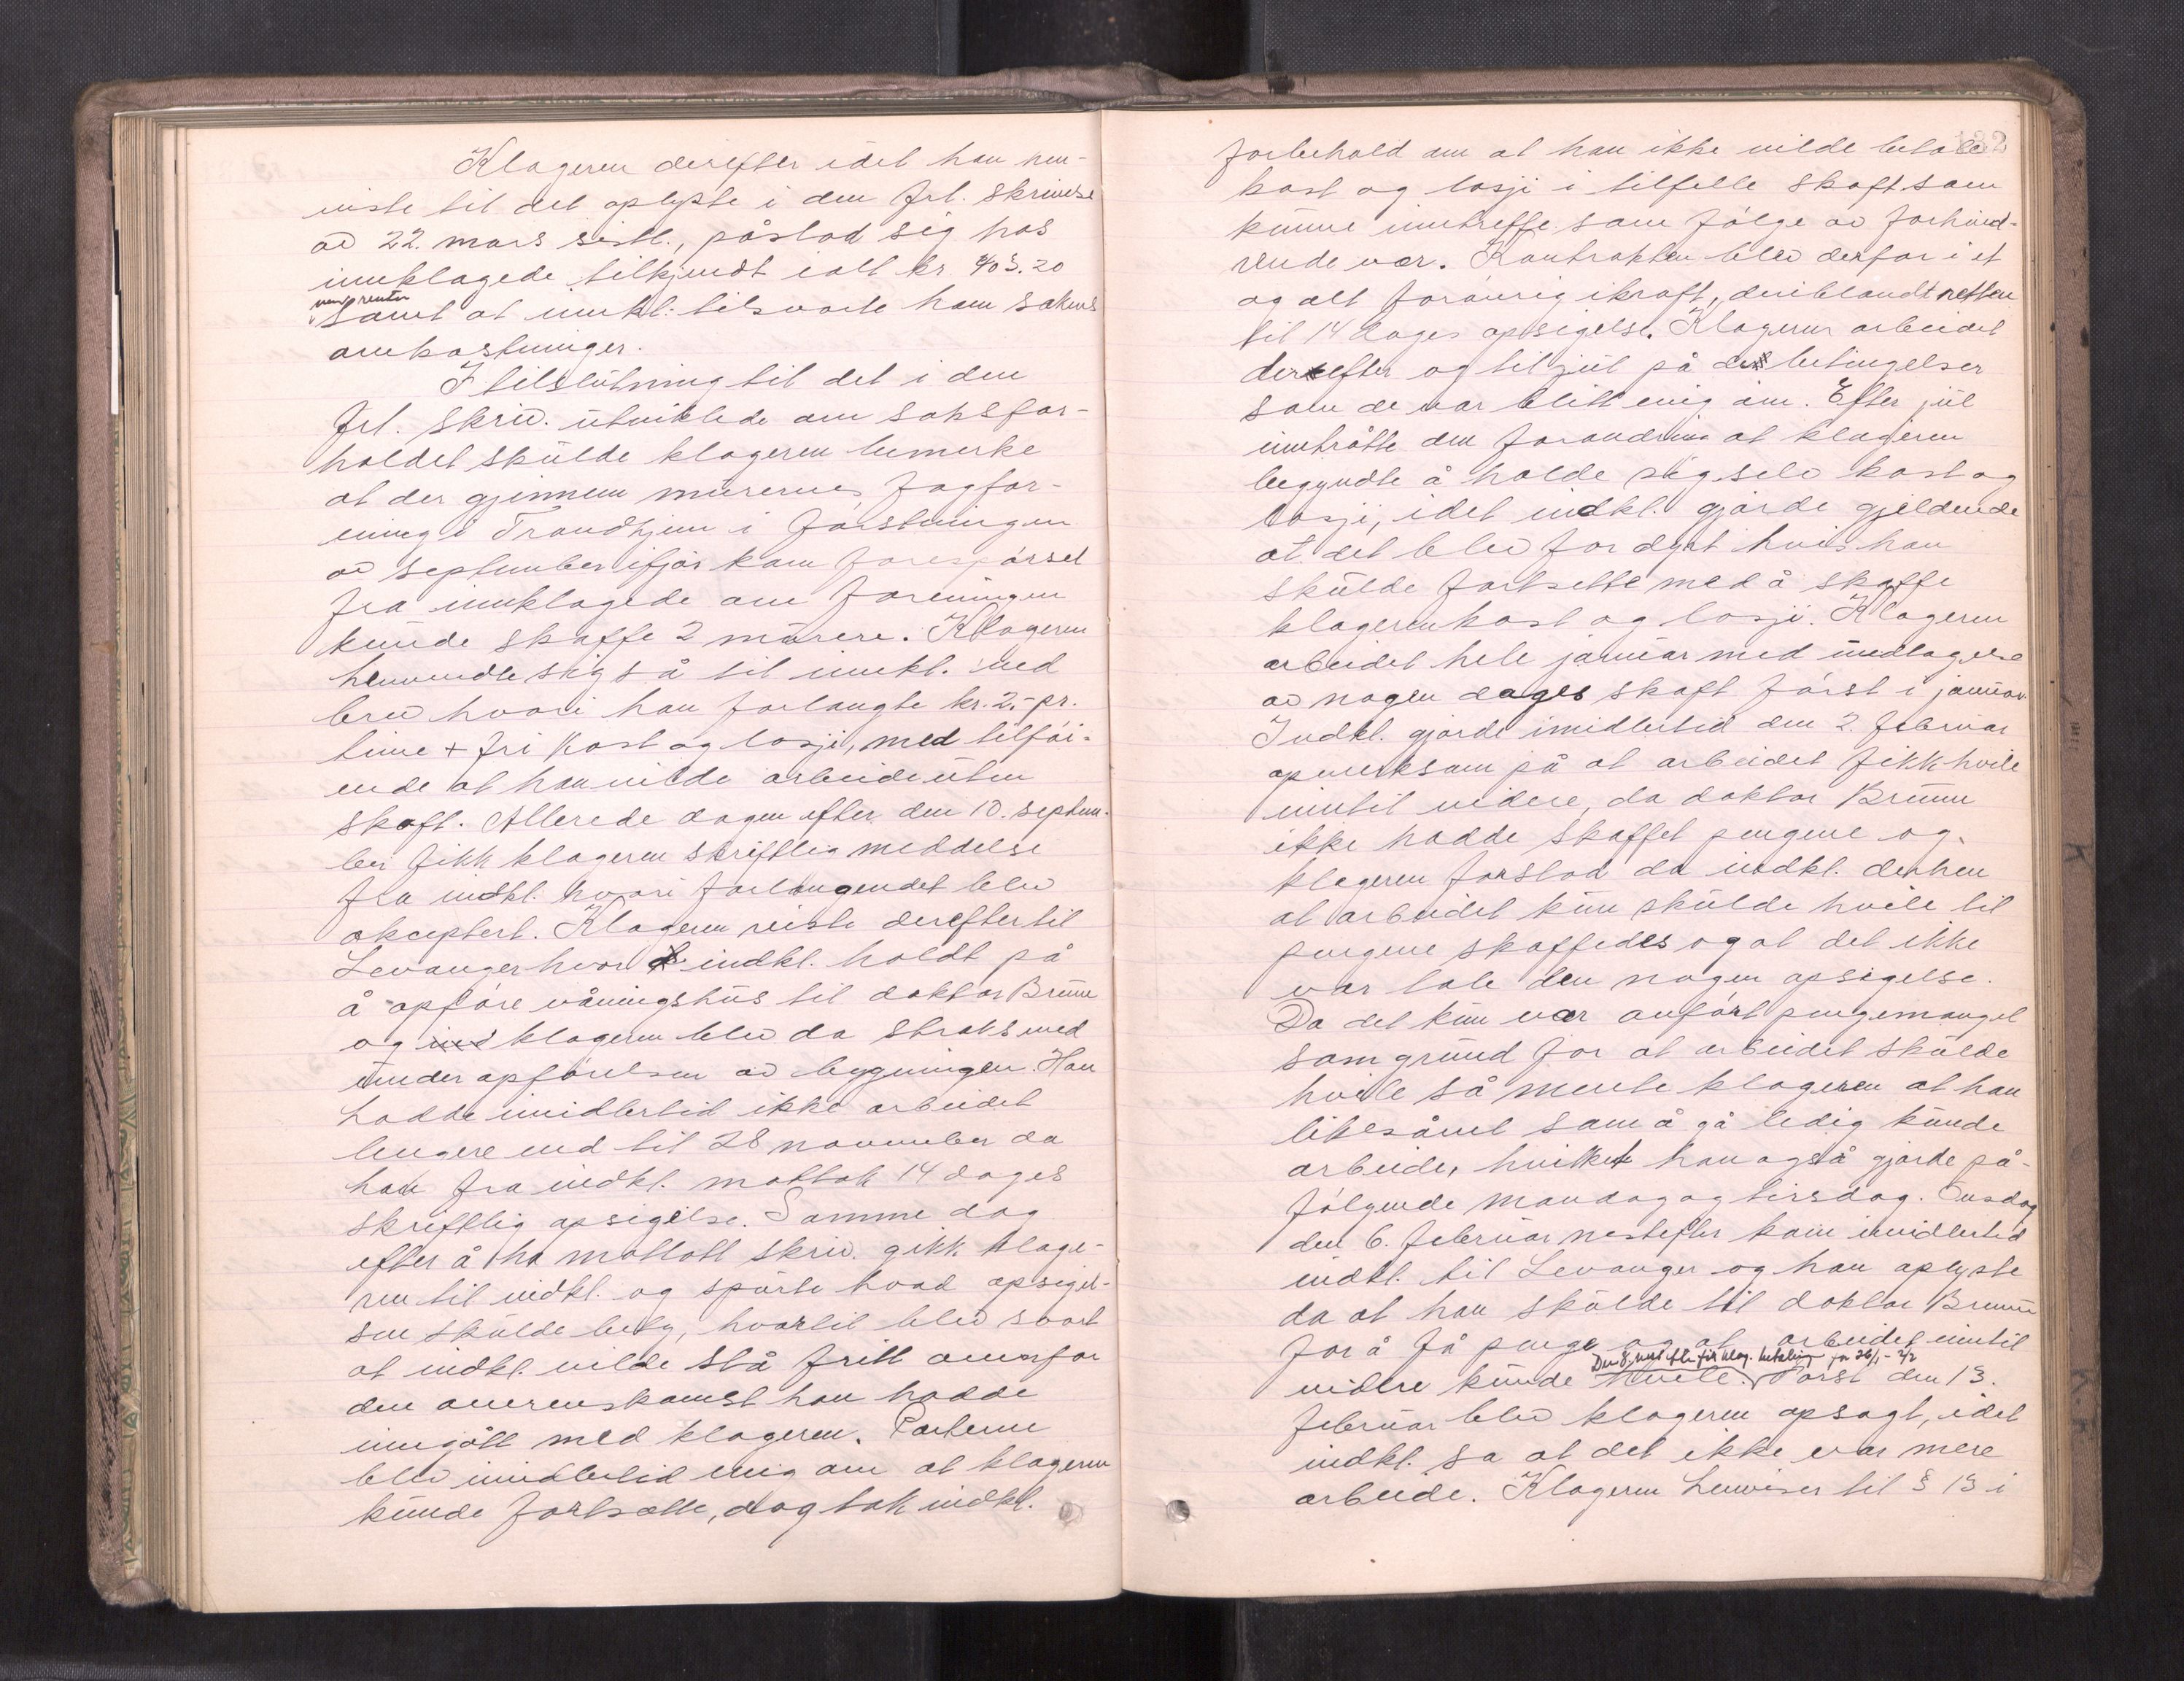 Klageren derefter idet han hen-
viste til det oplyste i den frl. skrivelse
av 22. mars sistl., påstod sig hos
innklagede tilkjendt ialt kr 403.20
med renter
samt at innkl. tilsvarte ham sakens
omkostninger.
I tilslutning til det i den
frl. skriv. utviklede om saksfor-
holdet skulde klageren bemerke
at der gjennem murernes fagfor-
ening i Trondhjem i førstningen
av september ifjor kom forespørsel
fra innklagede om foreningen
kunde skaffe 2 murere. Klageren
henvendte sig så til innkl. ved
brev hvori han forlangte kr. 2,- pr.
time + fri kost og losji, med tilføi-
ende at han vilde arbeide uten
skaft. Allerede dagen efter den 10. septem-
ber fikk klageren skriftlig meddelse
fra indkl. hvori forlangendet blev
akceptert. Klageren reiste derefter til
Levanger hvor indkl. holdt på
å opføre våningshus til doktor Brunn
og ind klageren blev da straks med
under opførelsen av bygningen. Han
hadde imidlertid ikke arbeidet
lengere end til 28 november da
han fra indkl. mottok 14 dages
skriftlig opsigelse. Samme dag
efter å ha mottatt skriv. gikk klage-
ren til indkl. og spurte hvad opsigel-
sen skulde bety, hvortil blev svart
at indkl. vilde stå fritt overfor
den overenskomst han hadde
inngått med klageren. Parterne
blev imidlertid enig om at klageren
kunde fortsætte, dog tok indkl.
132
forbehold om at han ikke vilde betale
kost og losji i tilfelle skaft som
kunne inntreffe som følge av forhind-
rende vær. Kontrakten blev derfor i et
og alt forøvrig ikraft, deriblandt retten
til 14 dages opsigelse. Klageren arbeidet
derefter og til jul på de betingelser
som de var blitt enig om. Efter jul
inntrådte den forandring at klageren
begyndte å holde sig selv kost og
losji, idet indkl. gjorde gjeldende
at det blev for dyrt hvis han
skulde fortsette med å skaffe
klageren kost og losji. Klageren
arbeidet hele januar med undtagelse
av nogen dages skaft først i januar.
Indkl. gjorde imidlertid den 2. februar
opmerksom på at arbeidet fikk hvile
inntil videre, da doktor Brunn
ikke hadde skaffet pengene og
klageren forstod da indkl. derhen
at arbeidet kun skulde hvile til
pengene skaffedes og at det ikke
var tale om nogen opsigelse.
Da det kun var anført pengemangel
som grund for at arbeidet skulde
hvile så mente klageren at han
likesåvel som å gå ledig kunde
arbeide, hvilket han også gjorde på-
følgende mandag og tirsdag. Onsdag
den 6. februar nestefter kom imidlertid
indkl. til Levanger og han oplyste
da at han skulde til doktor Brunn
for å få penge og at arbeidet inntil
Den 8. nestefter fik klag. betaling for 26/1 - 2/2
videre kunde hvile. Først den 13.
februar blev klageren opsagt, idet
indkl. sa at det ikke var mere
arbeide. Klageren henviser til § 13 i